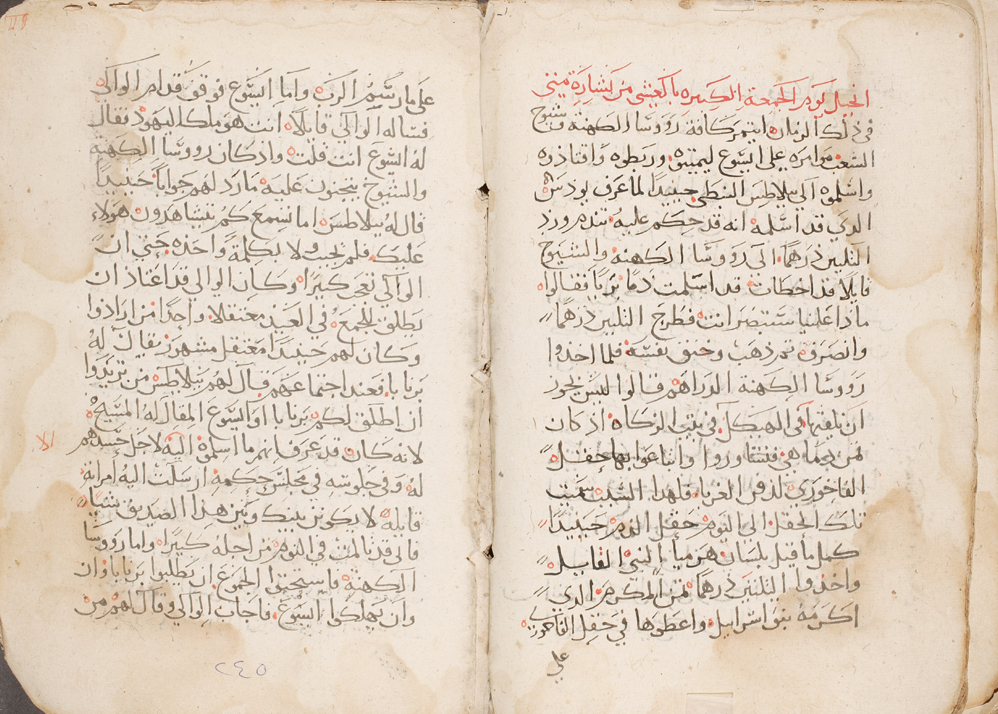 انجيل يوم الجمعة الكبيره باكعشي من بشارة متي
في ذلك الزمان ايتمر كافة رووسا الكهنة وشيوخ
الشعب موامره علي ايسوع ليميتوه وربطوه واقتادوه
واسلموه الي بيلاطس النبطي حينيدا لما عرف يودس
الدي قد اسلمه انه قد حكم عليه بندم ورد
التلتين درهما الي رووسا الكهنة والشيوخ
قايلا قد اخطات قد اسلمت دما بريا فقالوا
ما دا علينا ستبصر انت فطرح التلتين درهما
وانصرف تم دهب وخنق نفسه فلما اخدوا
رووسا الكهنة الدراهم قالوا ليس يجوز
ان نلقيها في الهيكل في بيت الزكاه اد كان
تمن دما هي فتشاوروا وابتاعوا بها حقل
الفاخوري لدفن الغربا فلهدا الشد سميت
تلك الحقل الي اليوم حقل الدم حينيدا
كمل ما قيل بلسان هرميا النبي القايل
واخدوا التلتين درهما تمن المكرم الدي
اكرمه بني اسرايل واعطوها في حقل الفاخوري
علي
علي ما رسم الرب واما ايسوع فوقف قدام الوالي
فساله الوالي قايلا انت هو ملك اليهود فقال
له ايسوع انت قلت واد كان رووسا الكهنة
والشيوخ ينجنون عليه ما رد لهم جوابا حينيدا
قال له بيلاطس اما تسمع كم يتشاهدون هولاء
عليك فلم يجب ولا بكلمة واحده حتي ان
الوالي تعجب كتيرا وكان الوالي قد اعتاد ان
يطلق للجمع في العيد معتقلا واحدا من ارادوا
وكان لهم حينيدا معتقل مشهر يقال له
برنابا فعند اجتماعهم قال لهم بيلاطس من تريدوا
ان اطلق لكم برنابا او ايسوع المقال له المسيح
لانه كان قد عرف انهم ما اسلموه اليه الا لاجل حسدهم
له وفي جلوسه في مجلس حكمه ارسلت اليه امراته
قايله لا يكونن بينك وبين هدا الصديق شيا
فاني قد تالمت في النوم من اجله كتيرا واما رووسا
الكهنة فاستجدوا الجموع ان يطلبوا برنابا وان
وان يهلكوا ايسوع فاجاب الوالي وقال لهم من
٢٤٥